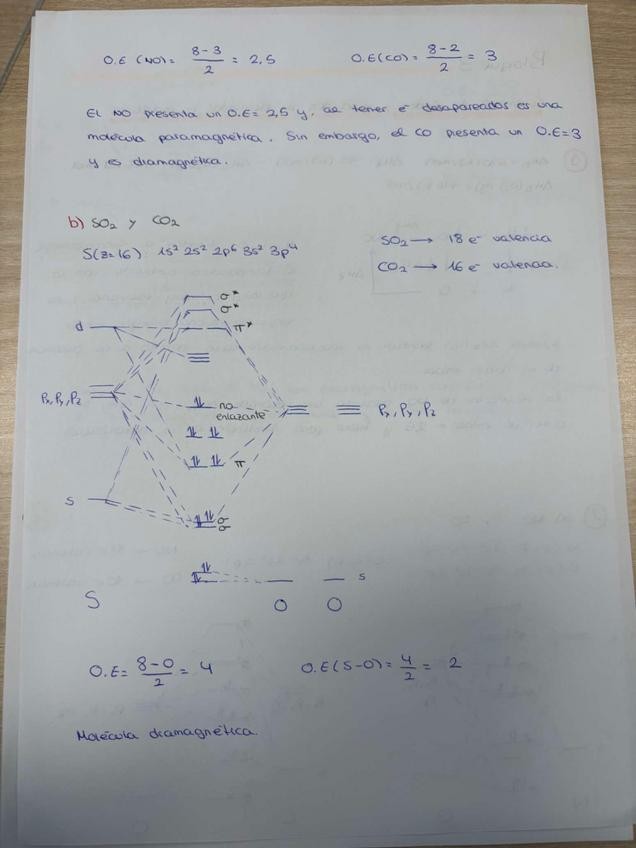 O.E (NO) = 8-3/2 = 2,5 O.E (CO) = 8-2/2 = 3
El NO presenta un O.E = 2,5 y, al tener e⁻ desapareados es una
molécula paramagnética. Sin embargo, el CO presenta un O.E=3
y es diamagnética.
b) SO₂ y CO₂
S(z=16) 1s² 2s² 2p⁶ 3s² 3p⁴
SO₂ → 18 e⁻ valencia
CO₂ → 16 e⁻ valencia.
σ*
σ*
d π*
Px, Py, Pz no Px, Py, Pz
enlazante
π
s
σ
σ
s
S O O
O.E = 8-0/2 = 4 O.E (S-O) = 4/2 = 2
Molécula diamagnética.